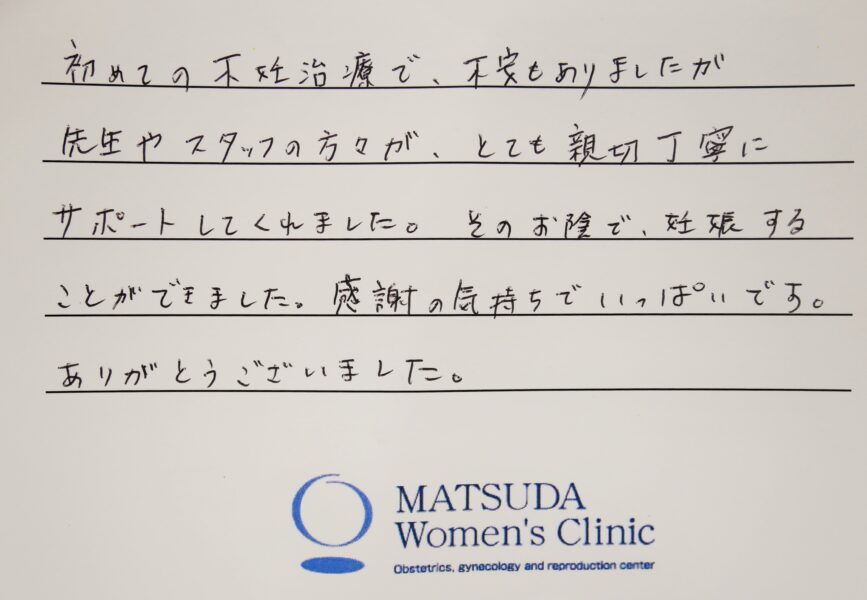 初めての不妊治療で、不安もありましたが
先生やスタッフの方々が、とても親切丁寧に
サポートしてくれました。そのお陰で、妊娠する
ことができました。感謝の気持ちでいっぱいです。
ありがとうございました。
MATSUDA
Women's Clinic
Obstetrics, gynecology and reproduction center